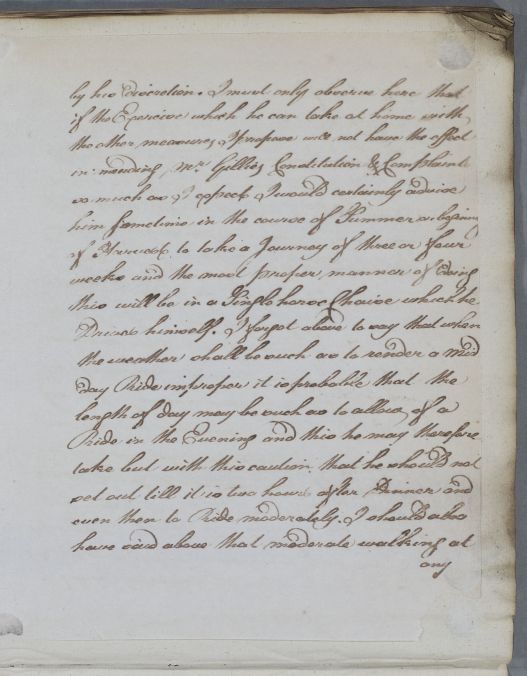 by his Discretion. I must only observe here that
if the Exercise which he can take at home with
the other measures I propose will not have the effect
in mending Mr. Gillies Constitution & Complaints
so much as I expect I would certainly advise
him sometime in the course of Summer or begining
of Harvest to take a Journey of three or four
weeks and the most proper manner of doing
this will be in a Single horse Chaise which he
Drives himself. I forgot above to say that when
the weather shall be such as to render a Mid
day Ride improper it is probable that the
length of day may be such as to allow of a
Ride in the Evening and this he may therefore
take but with this caution that he should not
set out till it is two hours after Dinner and
even then to Ride moderately. I should also
have said above that moderate walking at
any